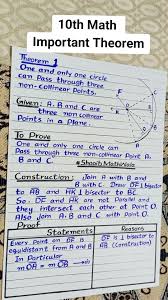 10th Math
Important Theorem
Theorem 1
One and only one circle
can Pass through three
non-collinear Points.
Given: A, B and C are
three non collinear
Points in a Plane.
To Prove
One and only one circle can
Pass through three non-collinear Point A,
B and C.
Construction: Join A with B and
B with C. Draw DF ⊥ bisector
to AB and HK ⊥ bisector to BC
So, DF and HK are not Parallel and
they intersect each other at Point O.
Also join A, B and C with Point O.
Proof
Statements
Reasons
Every Point on DF is
equidistant from A and B
In Particular
mOA = mOB
DF is ⊥ bisector to
AB (Construction)